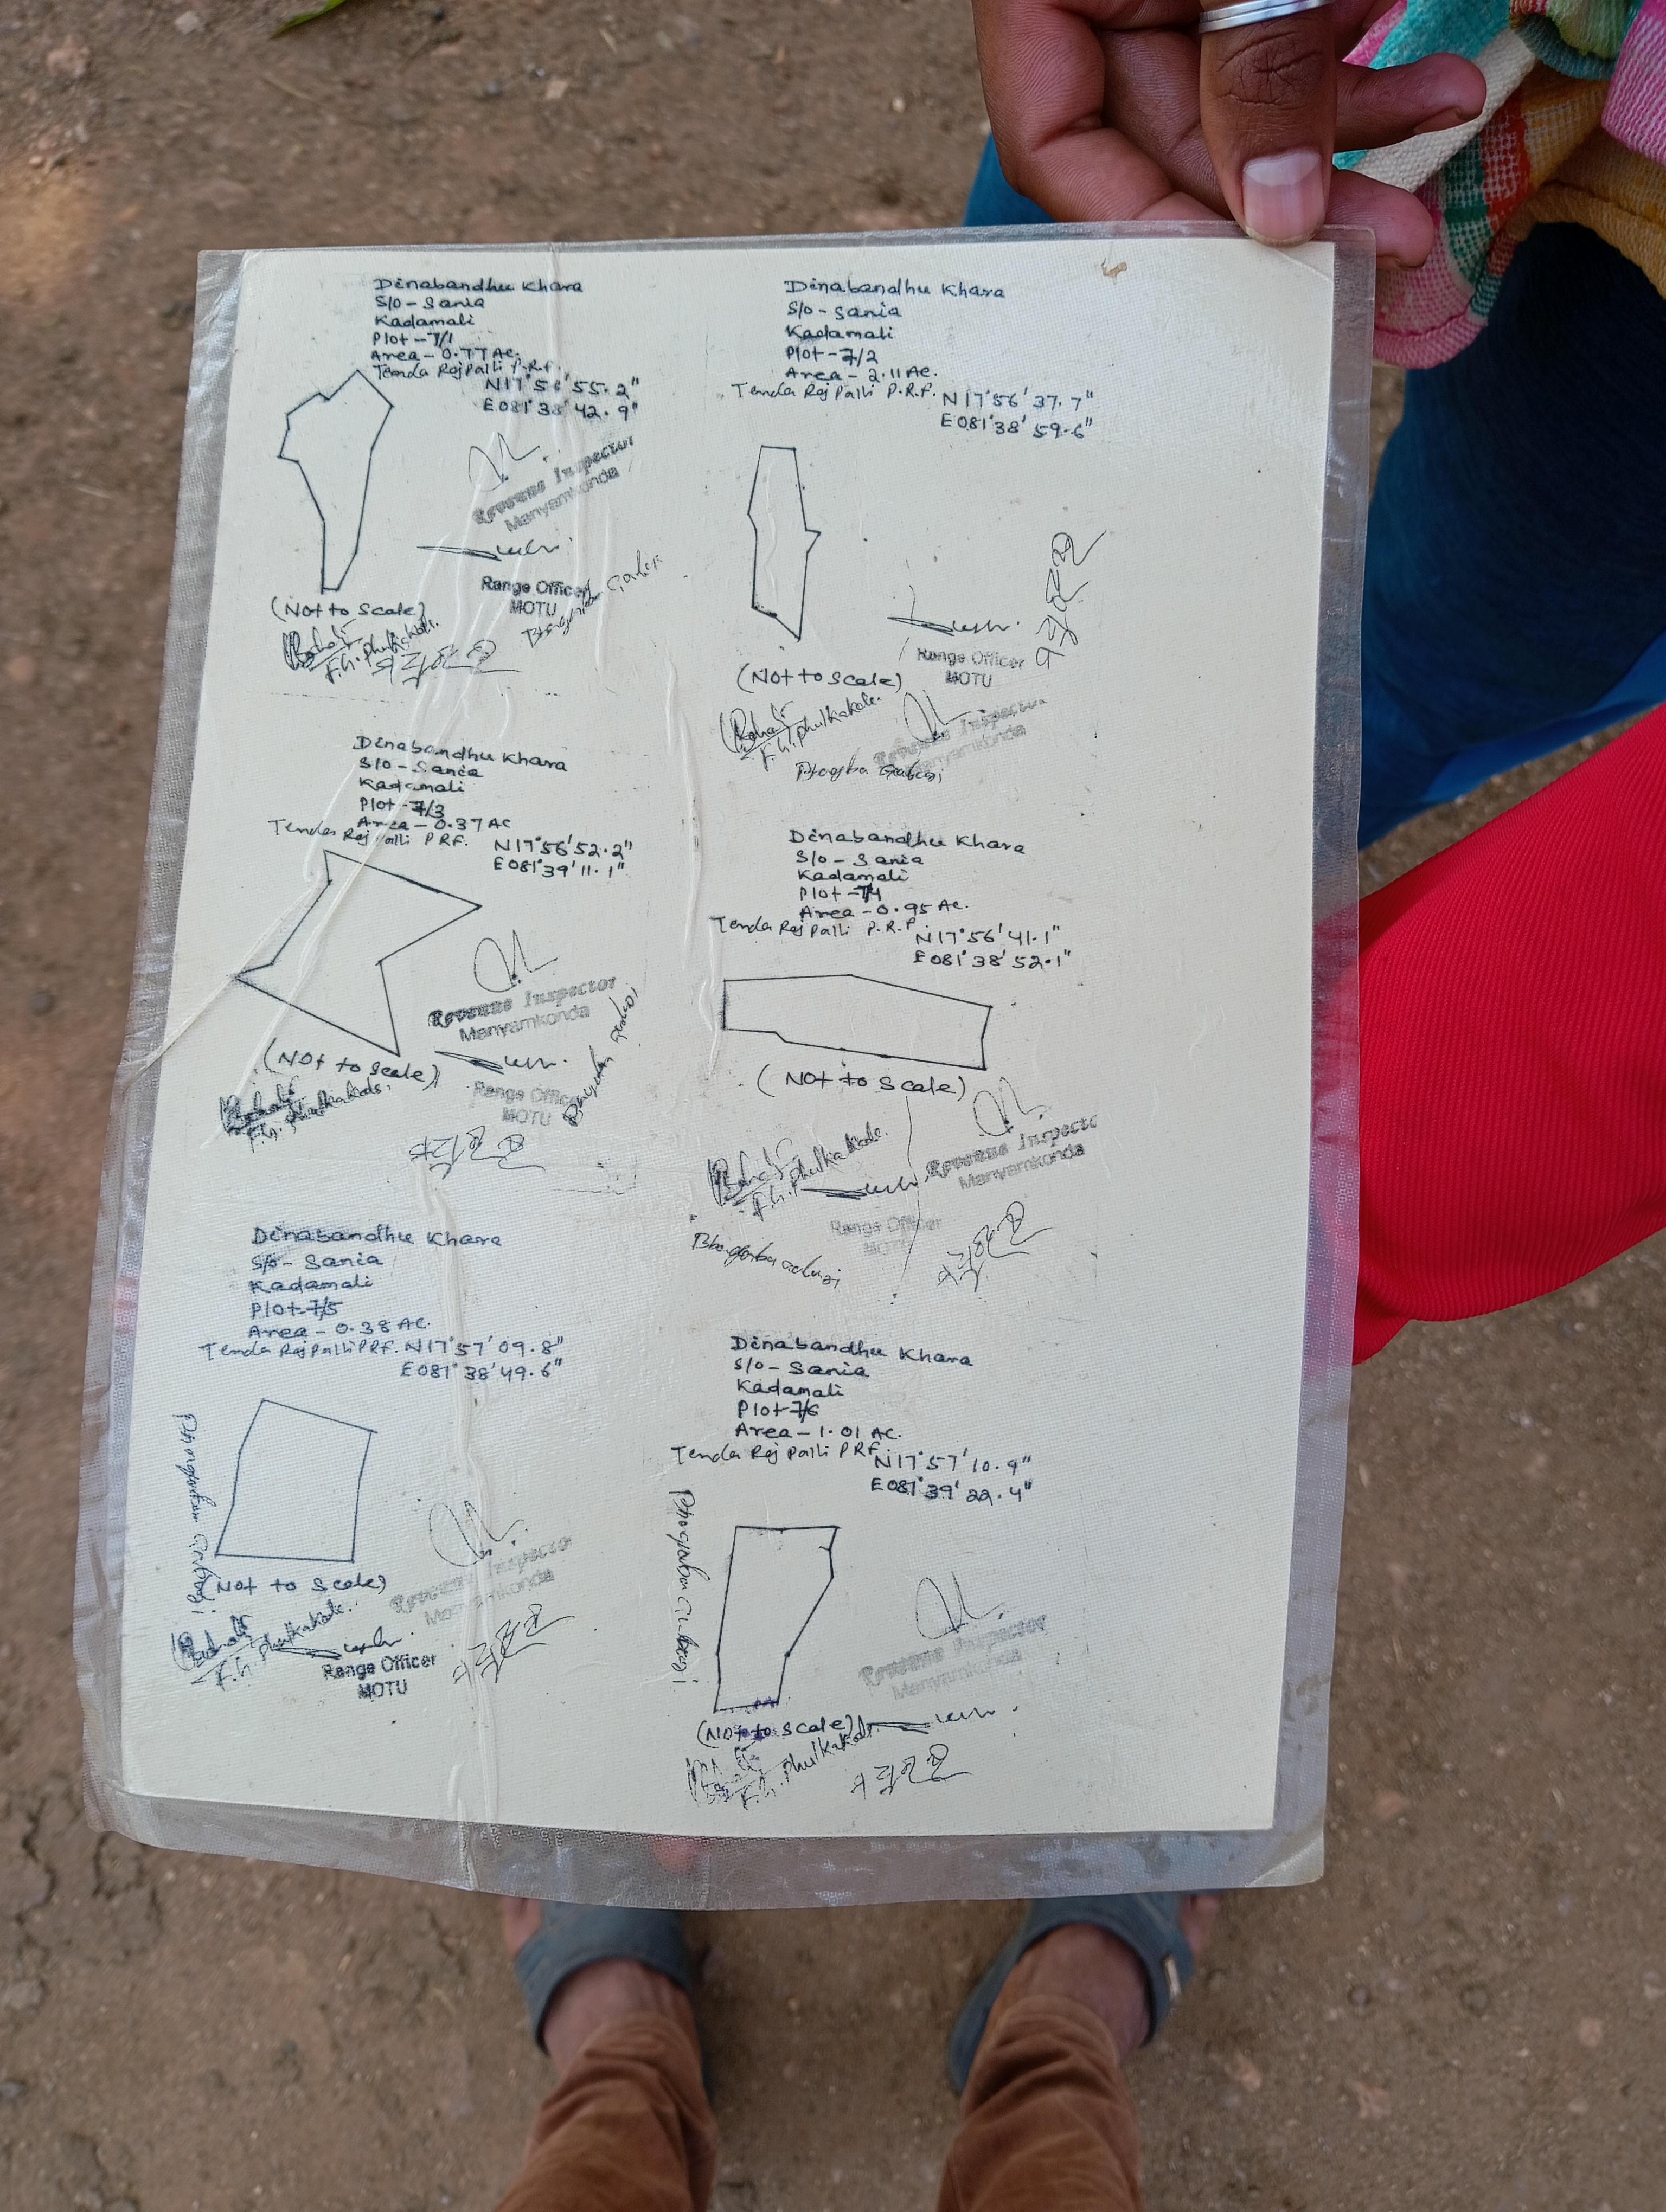 Dinabandhu Khara
S/o - Sania
Kadamali
Plot - 7/1
Area - 0.77 Ac.
Tenda Raj Palli P.R.F.
N17°56'55.2"
E081°38'42.9"
Revenue Inspector
Manyamkonda
Range Officer
MOTU
(Not to Scale)
F.G. Phulkakale.
Dinabandhu Khara
S/o - Sania
Kadamali
Plot - 7/2
Area - 2.11 Ac.
Tenda Raj Palli P.R.F.
N17°56'37.7"
E081°38'59.6"
Range Officer
MOTU
(Not to Scale)
F.G. Phulkakale.
Revenue Inspector
Manyamkonda
Dinabandhu Khara
S/o - Sania
Kadamali
Plot - 7/3
Area - 0.37 Ac
Tenda Raj Palli PRF.
N17°56'52.2"
E081°39'11.1"
Revenue Inspector
Manyamkonda
(Not to Scale)
Range Officer
MOTU
F.G. Phulkakale.
Dinabandhu Khara
S/o - Sania
Kadamali
Plot - 7/4
Area - 0.95 Ac.
Tenda Raj Palli P.R.F.
N17°56'41.1"
E081°38'52.1"
(Not to Scale)
F.G. Phulkakale.
Revenue Inspector
Manyamkonda
Range Officer
MOTU
Dinabandhu Khara
S/o - Sania
Kadamali
Plot - 7/5
Area - 0.38 Ac.
Tenda Raj Palli PRF. N17°57'09.8"
E081°38'49.6"
(Not to Scale)
Revenue Inspector
Manyamkonda
F.G. Phulkakale.
Range Officer
MOTU
Dinabandhu Khara
S/o - Sania
Kadamali
Plot - 7/6
Area - 1.01 Ac.
Tenda Raj Palli PRF.
N17°57'10.9"
E081°39'22.4"
Revenue Inspector
Manyamkonda
(Not to Scale)
F.G. Phulkakale